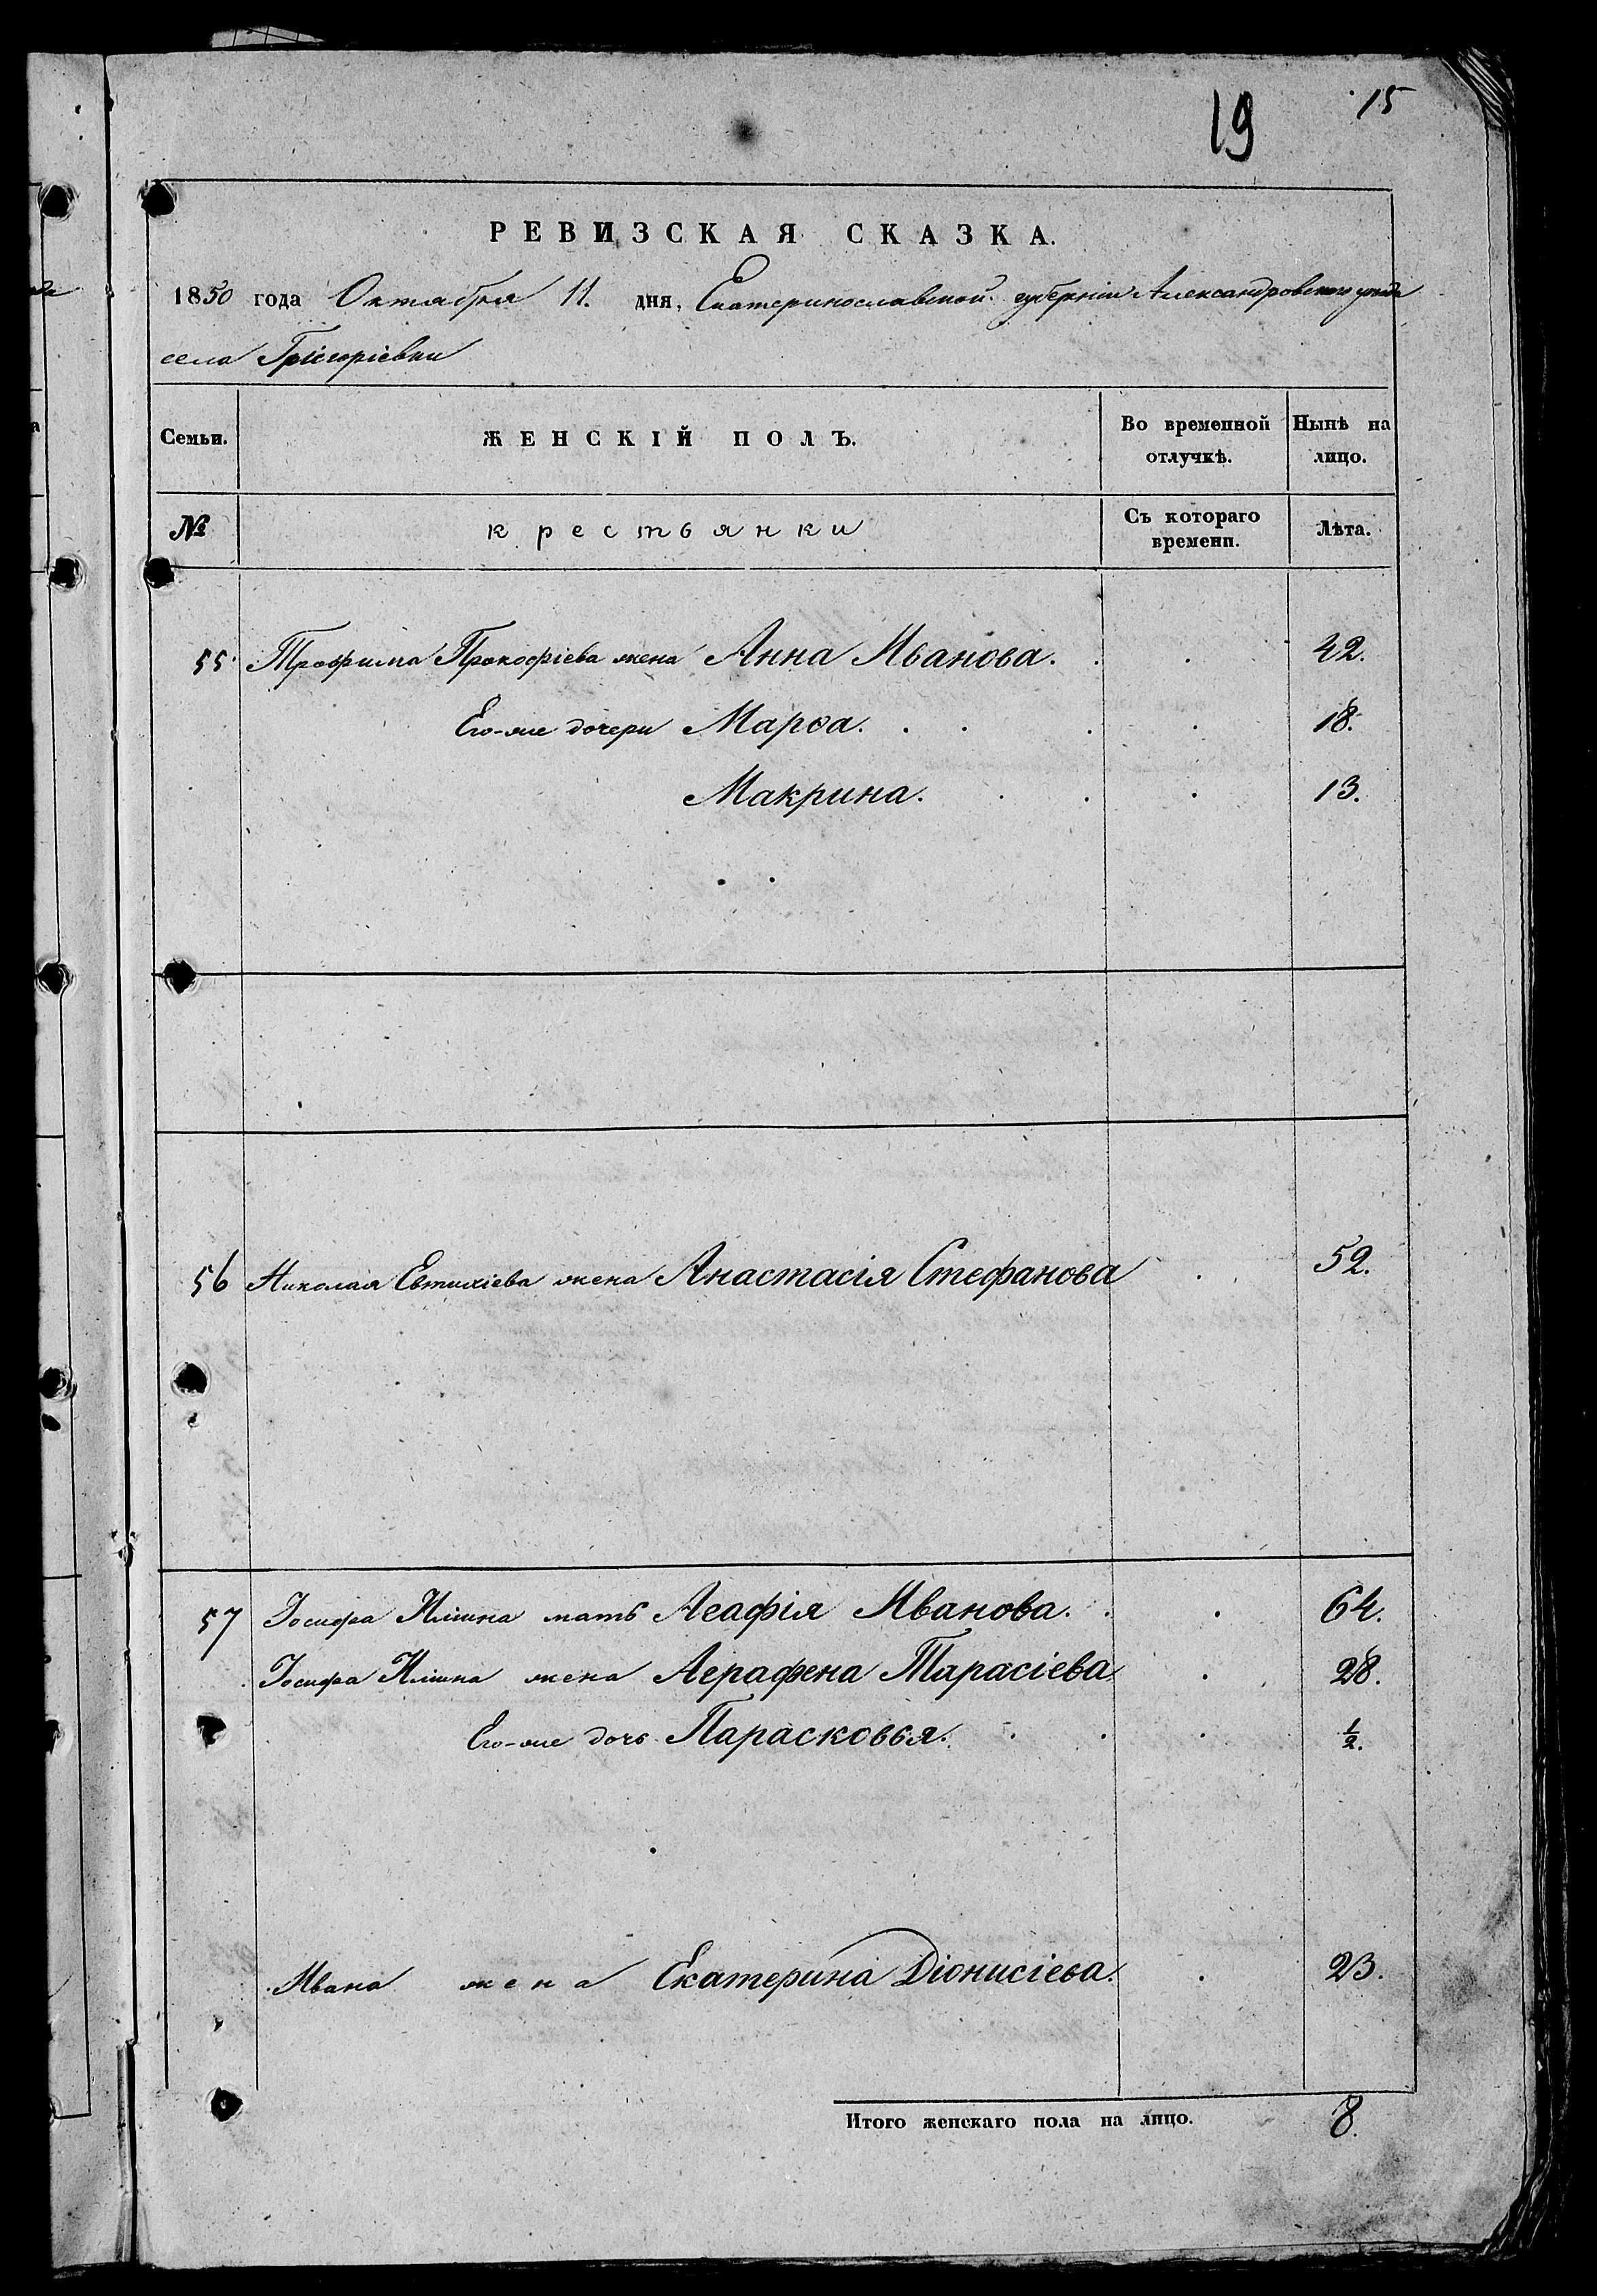 19
15
РЕВИЗСКАЯ СКАЗКА.
1850 года Октября 11. дня, Екатеринославской губерніи Александровского уѣзда
села Григоріевки
Семьи. ЖЕНСКІЙ ПОЛЪ. Во временной отлучкѣ. Нынѣ на лицо.
№ крестьянки Съ котораго времени. Лѣта.
55 Трофима Прокофіева жена Анна Иванова. 42.
Его-же дочери Марѳа. 18.
Макрина. 13.
56 Николая Евтихіева жена Анастасія Стефанова 52.
57 Іосифа Иліина мать Агафія Иванова. 64.
Іосифа Иліина жена Аграфена Тарасіева 28.
Его-же дочь Парасковья. 1/2.
Ивана жена Екатерина Діонисіева. 23.
Итого женскаго пола на лицо. 8.